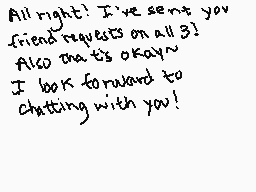 All right! I've sent you
friend requests on all 3!
Also that's okay~
I look forward to
chatting with you!